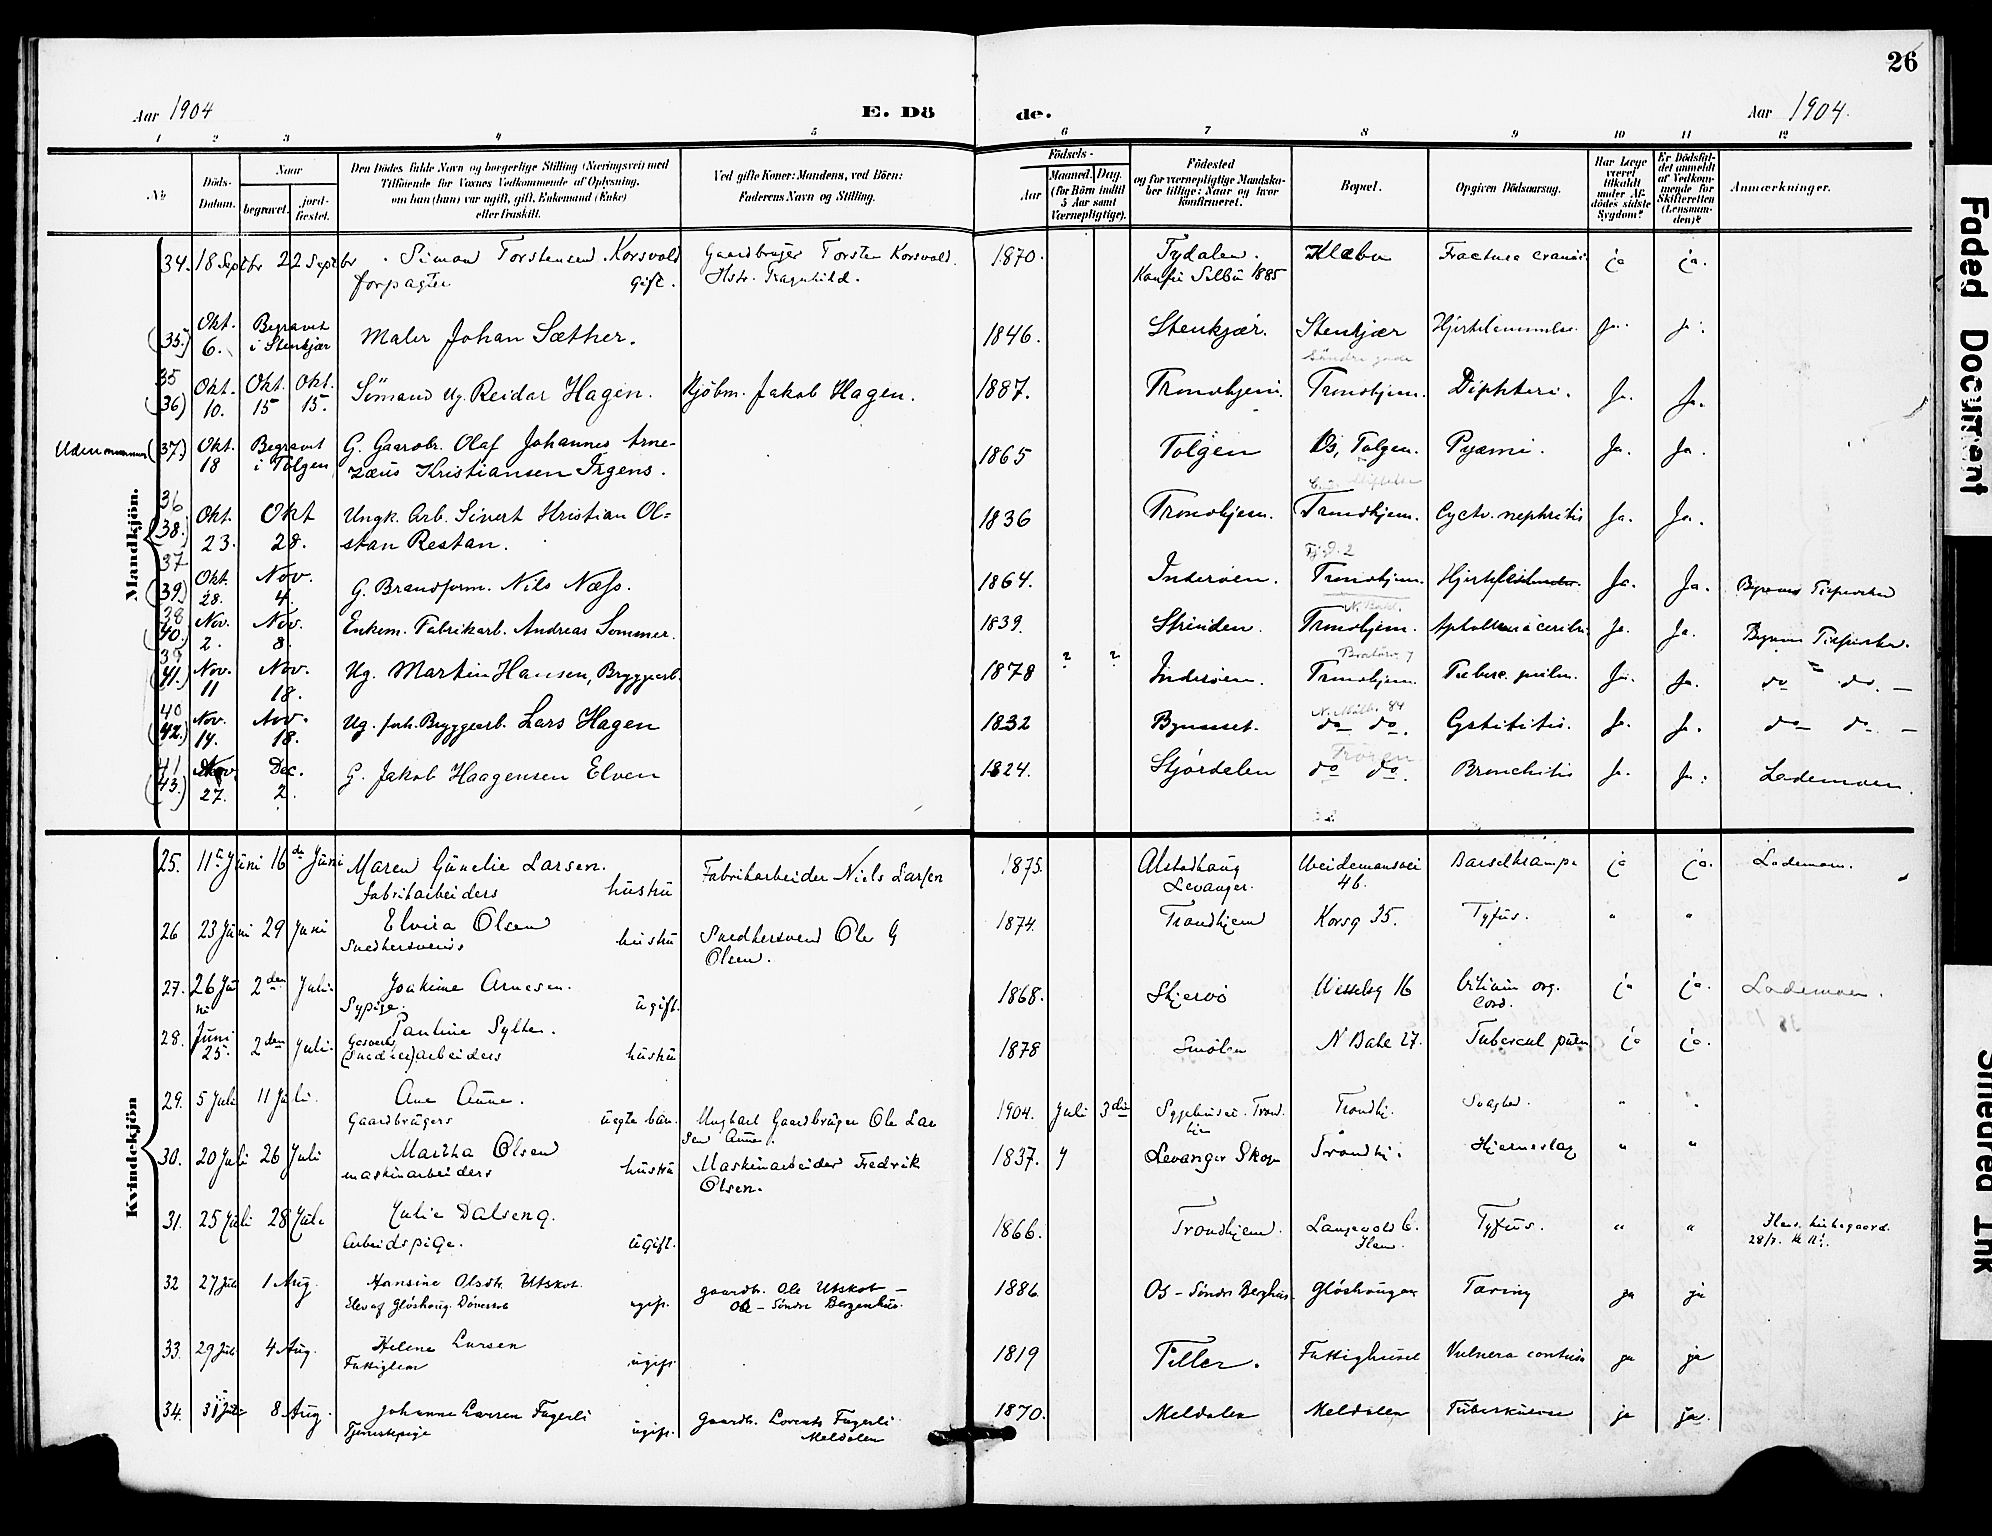 26
Aar 1904
E. Dö
de.
Aar 1904.
1 2 3 4 5 6 7 8 9 10 11 12
№
Döds-
Datum.
Naar
begravet.
jord-
fæstet.
Den Dødes fulde Navn og borgerlige Stilling (Næringsvei) med
Tilföiende for Voxnes Vedkommende af Oplysning,
om han (hun) var ugift, gift, Enkemand (Enke)
eller fraskilt.
Ved gifte Koner: Mandens, ved Börn:
Faderens Navn og Stilling.
Födsels-
Aar
Maaned.
Dag.
(for Börn indtil
5 Aar samt
Værnepligtige).
Födested
og for værnepligtige Mandska-
ber tillige: Naar og hvor
Konfirmeret.
Bopæl.
Opgiven Dödsaarsag.
Har Læge
været
tilkaldt
under Af-
dödes sidste
Sygdom?
Er Dödsfal-
det anmeldt
af Vedkom-
mende for
Skifteretten
(Lensman-
den)?
Anmærkninger.
Mandkjön.
34. 18 Septbr 22 Septbr Simon Torstensen Korsvold Gaardbruger Torsten Korsvold. 1870. Tydalen. Klæbu Fractura cranii ja ja.
forpagter gift. Hstr. Ragnhild. Konfir Selbu 1885
(35.) Okt. 6. Begravet i Stenkjær Maler Johan Sæther. 1846. Stenkjær. Stenkjær Ja. Ja.
Søndre gade
35 (36) Okt. 10. Okt. 15 Okt. 15. Sömand Ug. Reidar Hagen. Kjöbm. Jakob Hagen. 1887. Trondhjem. Trondhjem. Diphteri. Ja. Ja.
(37.) Okt. 18 Begravet i Tolgen G. Gaardbr. Olaf Johannes Arne- 1865 Tolgen Os, Tolgen. Pyæmi. Ja. Ja.
zæus Kristiansen Irgens.
36 (38.) Okt. 23. Okt 28. Ungk. Arb. Sivert Kristian Ol= 1836 Trondhjem. Trondhjem. Cyct. nephritis Ja. Ja.
stan Restan.
37 (39.) Okt. 28. Nov. 4. G. Brandform. Nils Næss. 1864. Inderøen. Trondhjem. Ja. Ja.
38 (40.) Nov. 2. Nov. 8. Enkem. Fabrikarb. Andreas Sommer. 1839. Strinden. Trondhjem. Ja. Ja.
39 (41.) Nov. 11 Nov. 18. Ug. Martin Hansen, Bryggearb. 1878 ? ? Inderøen. Trondhjem. Tuberc. pulm. Ja. Ja. do do. —
40 (42.) Nov. 14. Nov. 18. Ug. forh. Bryggearb. Lars Hagen 1832 Bynesset. do do. Cystitis. Ja. Ja. do do. —
41 (43.) Nov 27. Dec. 2. G. Jakob Haagensen Elven 1824. Stjørdalen do do. Bronchitis Ja. Ja. Lademoen.
Kvindekjön
25. 11te Juni 16de Juni Maren Gunelie Larsen. Fabrikarbeider Niels Larsen 1875. Alstadhaug Weidemansvei Barselkrampe ja ja. Lademoen.
fabrikarbeiders hustru Levanger. 46.
26 23 Juni 29 Juni Elvira Olsen Snedkersvend Ole G 1874. Trondhjem Korsg 35. Tyfus. " "
Snedkersvends hustru Olsen.
27. 26 Juni 2den Juli. Joakime Arnesen. 1868. Skjervö Wesselsg 16 Vitium org. ja ja. Lademoen.
Sypige. ugift. Cord.
28. Juni 25. 2den Juli. Pauline Sylte. 1878 Smølen N Bakl 27. Tubercul pulm ja ja.
Gasverks (Snedker)arbeiders hustru
29. 5 Juli 11 Juli. Ane Aune. Ungkarl Gaardbruger Ole Lar 1904. Juli 3die Sygehuset. Trond. Trondhj. Svaghed. " "
Gaardbrugers uegte barn. sen Aune. hjm
30. 20 Juli 26 Juli Martha Olsen Maskinarbeider Fredrik 1837. Levanger Skogn Trondhj. Hjerneslag " "
maskinarbeiders hustru Olsen.
31. 25 Juli 28 Juli Julie Dalseng. 1866. Trondhjem. Tyfus. " " Ilens kirkegaard.
Arbeidspige. ugift. Ilen.
32 27 Juli 1 Aug. Hansine Olsdtr. Utskot. gaardbr. Ole Utskot — 1886. Os – Søndre Berghus. Gløshaugen Tæring ja ja
Elev af Gløshaug. Döveskole ugift. Os – Søndre Bergenhus.
33. 29 Juli 4 Aug. Helene Larsen 1819 Tiller. Fattighuset Vulnera contusa ja ja
Fattiglem ugift
34. 31 Juli 8 Aug. Johanne Larsen Fagerli gaardbr. Lorents Fagerli 1870. Meldalen Meldalen Tuberkulose ja ja.
Tjenestepige ugift. Meldalen
Faded Document
Smeared Ink